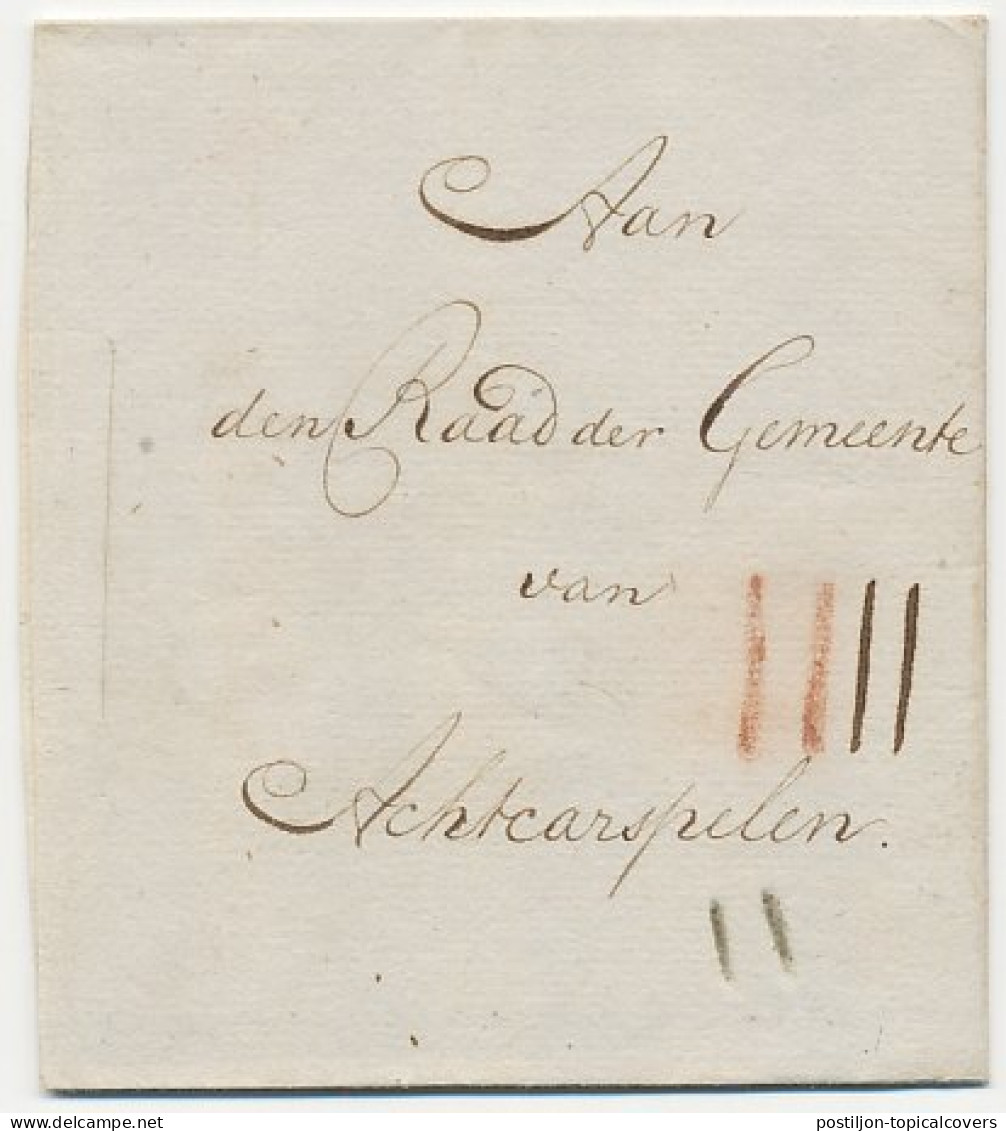 Aan
den Raad der Gemeente
van
Achtcarspelen.
postiljon-topicalcovers
delcampe.net